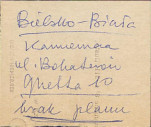 Bielsko-Biała
Kamienica
ul. Bohaterów
Ghetta 10
brak planu